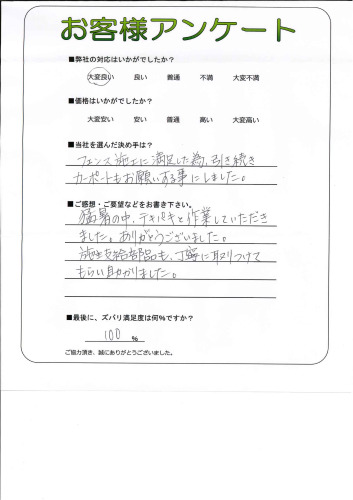 お客様アンケート
■弊社の対応はいかがでしたか？
大変良い 良い 普通 不満 大変不満
■価格はいかがでしたか？
大変安い 安い 普通 高い 大変高い
■当社を選んだ決め手は？
フェンス施工に満足した為、引き続き
カーポートもお願いする事にしました。
■ご感想・ご要望などをお書き下さい。
猛暑の中、テキパキと作業していただき
ました。ありがとうございました。
施主支給部品も、丁寧に取りつけて
もらい助かりました。
■最後に、ズバリ満足度は何%ですか？
100 %
ご協力頂き、誠にありがとうございました。